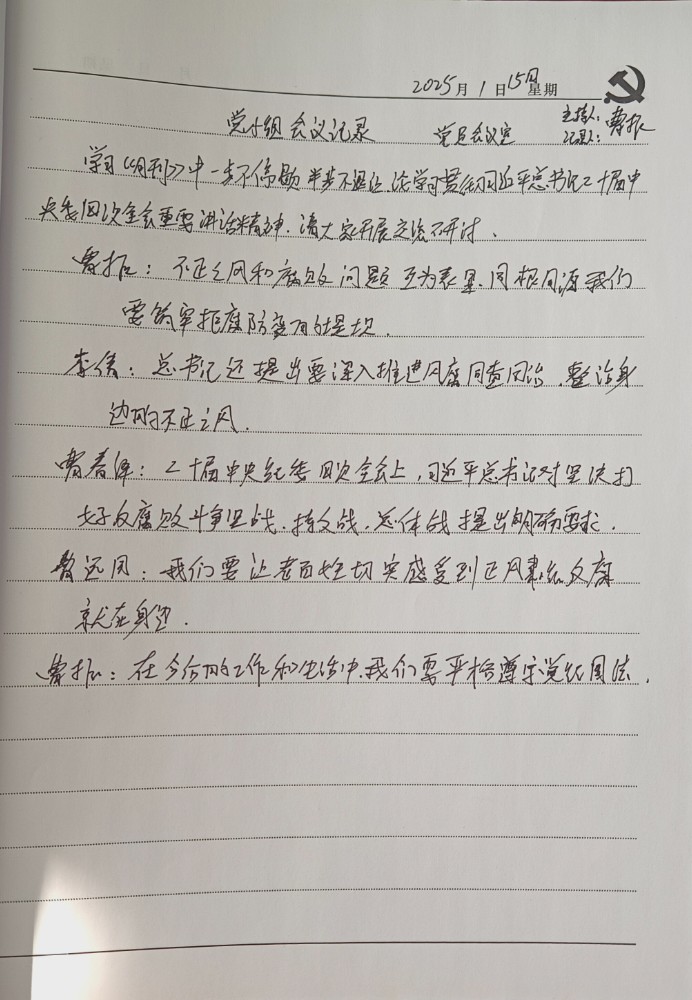 2025月1日15日星期
党小组会议记录 党员会议室 主持人: 记录人: 曹振
学习《月刊》中一步不停歇 半步不退让,论学习贯彻习近平总书记二十届中
央纪委四次全会重要讲话精神.请大家开展交流研讨、
曹振:不正之风和腐败问题互为表里.同根同源我们
要筑牢拒腐防变的堤坝.
李倩:总书记还提出要深入推进风腐同查同治.整治身
边的不正之风.
曹春:二十届中央纪委四次全会上,习近平总书记对坚决打
好反腐败斗争坚战.持久战.总体战提出明确要求.
曹远:我们要让老百姓切实感受到正风肃纪反腐
就在身边.
曹振:在今后的工作和生活中.我们要严格遵守党纪国法.